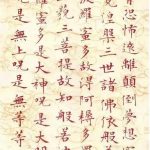 恐怖遠離顛倒夢想
涅槃三世諸佛依般
波羅蜜多故得阿耨多
藐三菩提故知般若
羅蜜多是大神咒是大
咒是無上咒是無等等